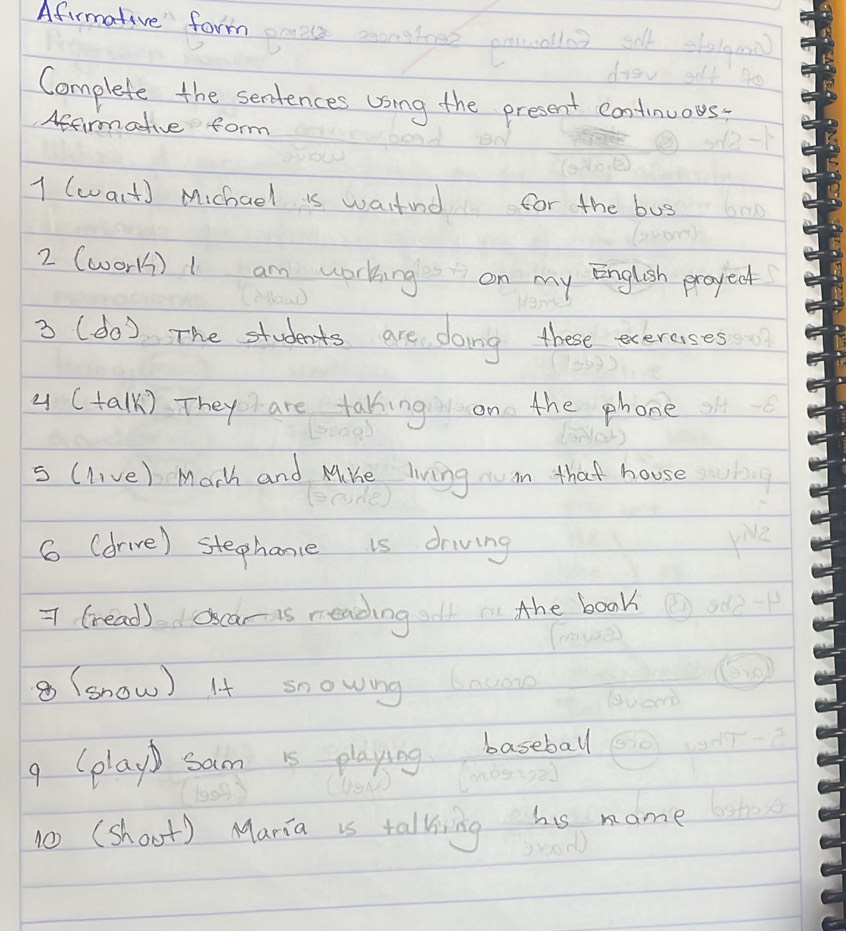 Afirmative form
Complete the sentences using the present continuous-
Affirmative form
1 (wait) Michael is waitind for the bus
2 (work) I am working on my English proyect
3 (do) The students are doing these exercises
4 (talk) They are taking on the phone
5 (live) Mark and Mike living in that house
6 (drive) Stephanie is driving
7 (read) Oscar is reading the book
8 (snow) It snowing
9 (play) Sam is playing baseball
10 (shoot) María is talking his name